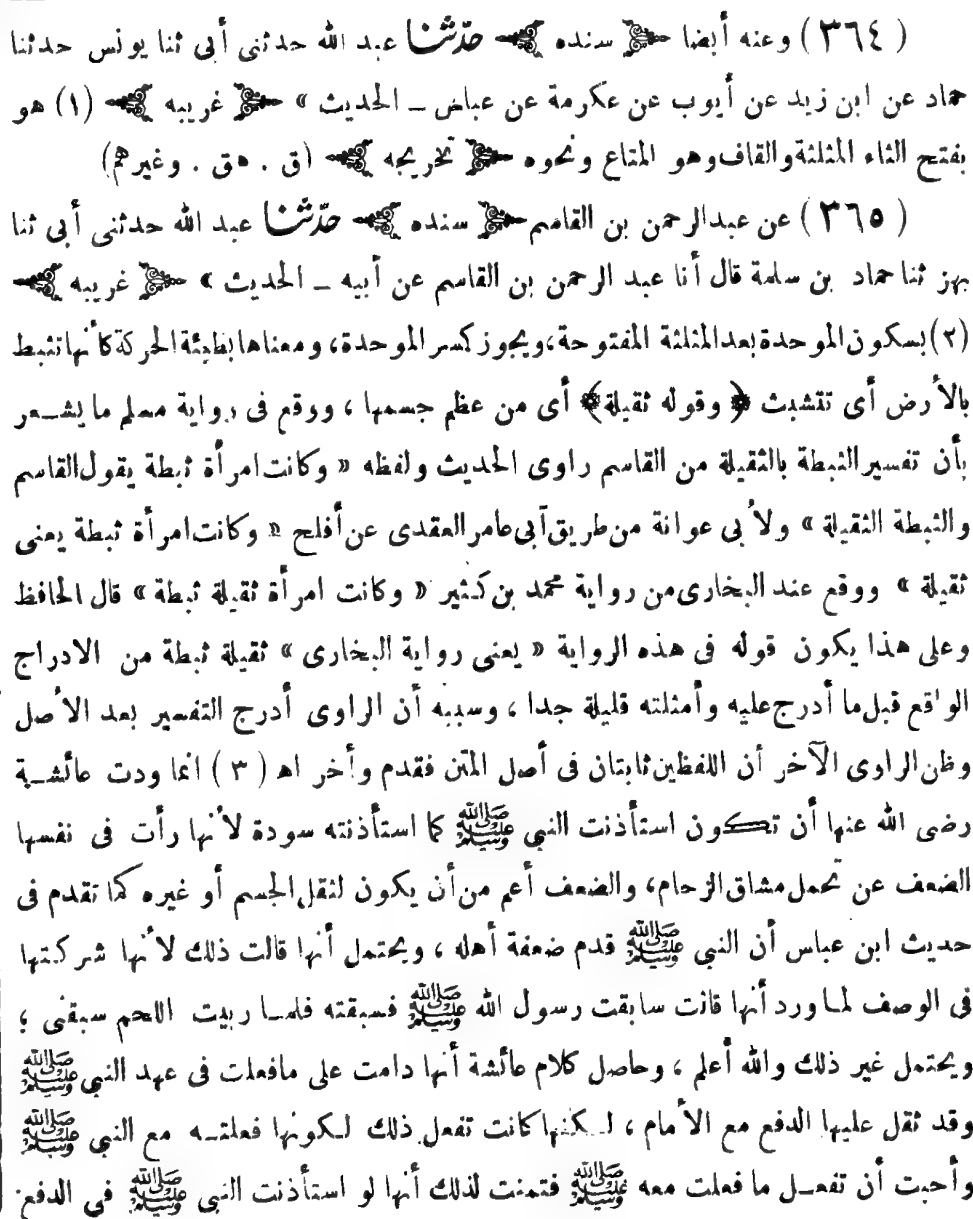 ( ٣٦٤ ) وعنه أيضا ﴿ سنده ﴾ حدّثنا عبد الله حدثنى أبى ثنا يونس حدثنا
حماد عن ابن زيد عن أيوب عن عكرمة عن عباس ــ الحديث » ﴿ غريبه ﴾ (١) هو
بفتح الثاء المثلثة والقاف وهو المتاع ونحوه ﴿ تخريجه ﴾ (ق . هق . وغيرهم)
( ٣٦٥ ) عن عبد الرحمن بن القاسم ﴿ سنده ﴾ حدّثنا عبد الله حدثنى أبى ثنا
بهز ثنا حماد بن سلمة قال أنا عبد الرحمن بن القاسم عن أبيه ــ الحديث » ﴿ غريبه ﴾
(٢) بسكون الموحدة بعد المثلثة المفتوحة، ويجوز كسر الموحدة، ومعناها بطيئة الحركة كأنها تثبط
بالأرض أى تتشبث ﴿ وقوله ثقيلة ﴾ أى من عظم جسمها ، ووقع فى رواية مسلم ما يشــعر
بأن تفسير الثبطة بالثقيلة من القاسم راوى الحديث ولفظه « وكانت امرأة ثبطة يقول القاسم
والثبطة الثقيلة » ولأبى عوانة من طريق أبى عامر العقدى عن أفلح « وكانت امرأة ثبطة يعنى
ثقيلة » ووقع عند البخارى من رواية محمد بن كثير « وكانت امرأة ثقيلة ثبطة » قال الحافظ
وعلى هذا يكون قوله فى هذه الرواية « يعنى رواية البخارى » ثقيلة ثبطة من الادراج
الواقع قبل ما أدرج عليه وأمثلته قليلة جدا ، وسببه أن الراوى أدرج التفسير بعد الأصل
وظن الراوى الآخر أن اللفظين ثابتان فى أصل المتن فقدم وأخر اهـ ( ٣ ) انما ودت عائشــة
رضى الله عنها أن تكون استأذنت النبى ﷺ كما استأذنته سودة لأنها رأت فى نفسها
الضعف عن تحمل مشاق الزحام، والضعف أعم من أن يكون لثقل الجسم أو غيره كما تقدم فى
حديث ابن عباس أن النبى ﷺ قدم ضعفة أهله ، ويحتمل أنها قالت ذلك لأنها شركتها
فى الوصف لما ورد أنها قالت سابقت رسول الله ﷺ فسبقته فلمــا ربيت اللحم سبقنى ؛
ويحتمل غير ذلك والله أعلم ، وحاصل كلام عائشة أنها دامت على ما فعلت فى عهد النبى ﷺ
وقد ثقل عليها الدفع مع الأمام ، لــكنها كانت تفعل ذلك لــكونها فعلتــه مع النبى ﷺ
وأحبت أن تفعــل ما فعلت معه ﷺ فتمنت لذلك أنها لو استأذنت النبى ﷺ فى الدفع